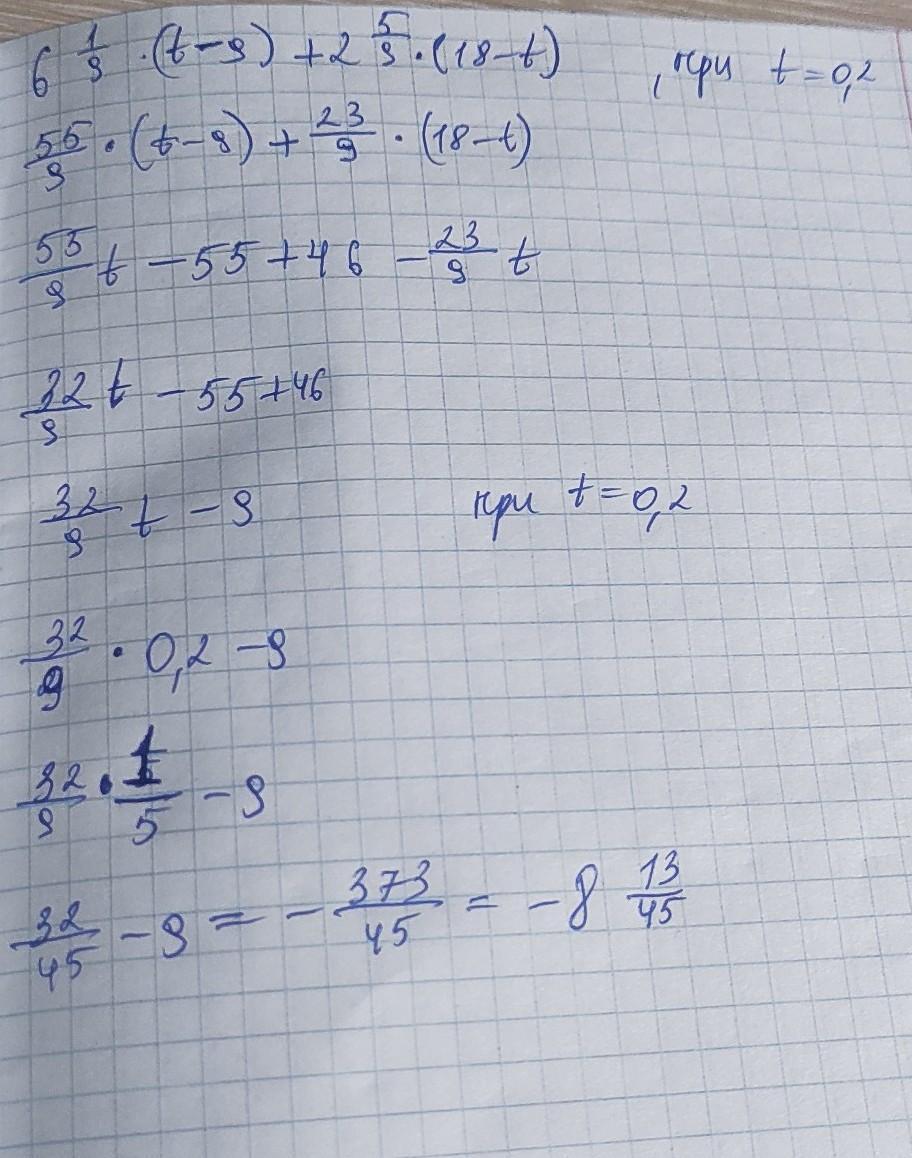 6 1/9 · (t-9) + 2 5/9 · (18-t) , при t = 0,2
55/9 · (t-9) + 23/9 · (18-t)
55/9 t - 55 + 46 - 23/9 t
32/9 t - 55 + 46
32/9 t - 9 при t = 0,2
32/9 · 0,2 - 9
32/9 · 1/5 - 9
32/45 - 9 = - 373/45 = - 8 13/45